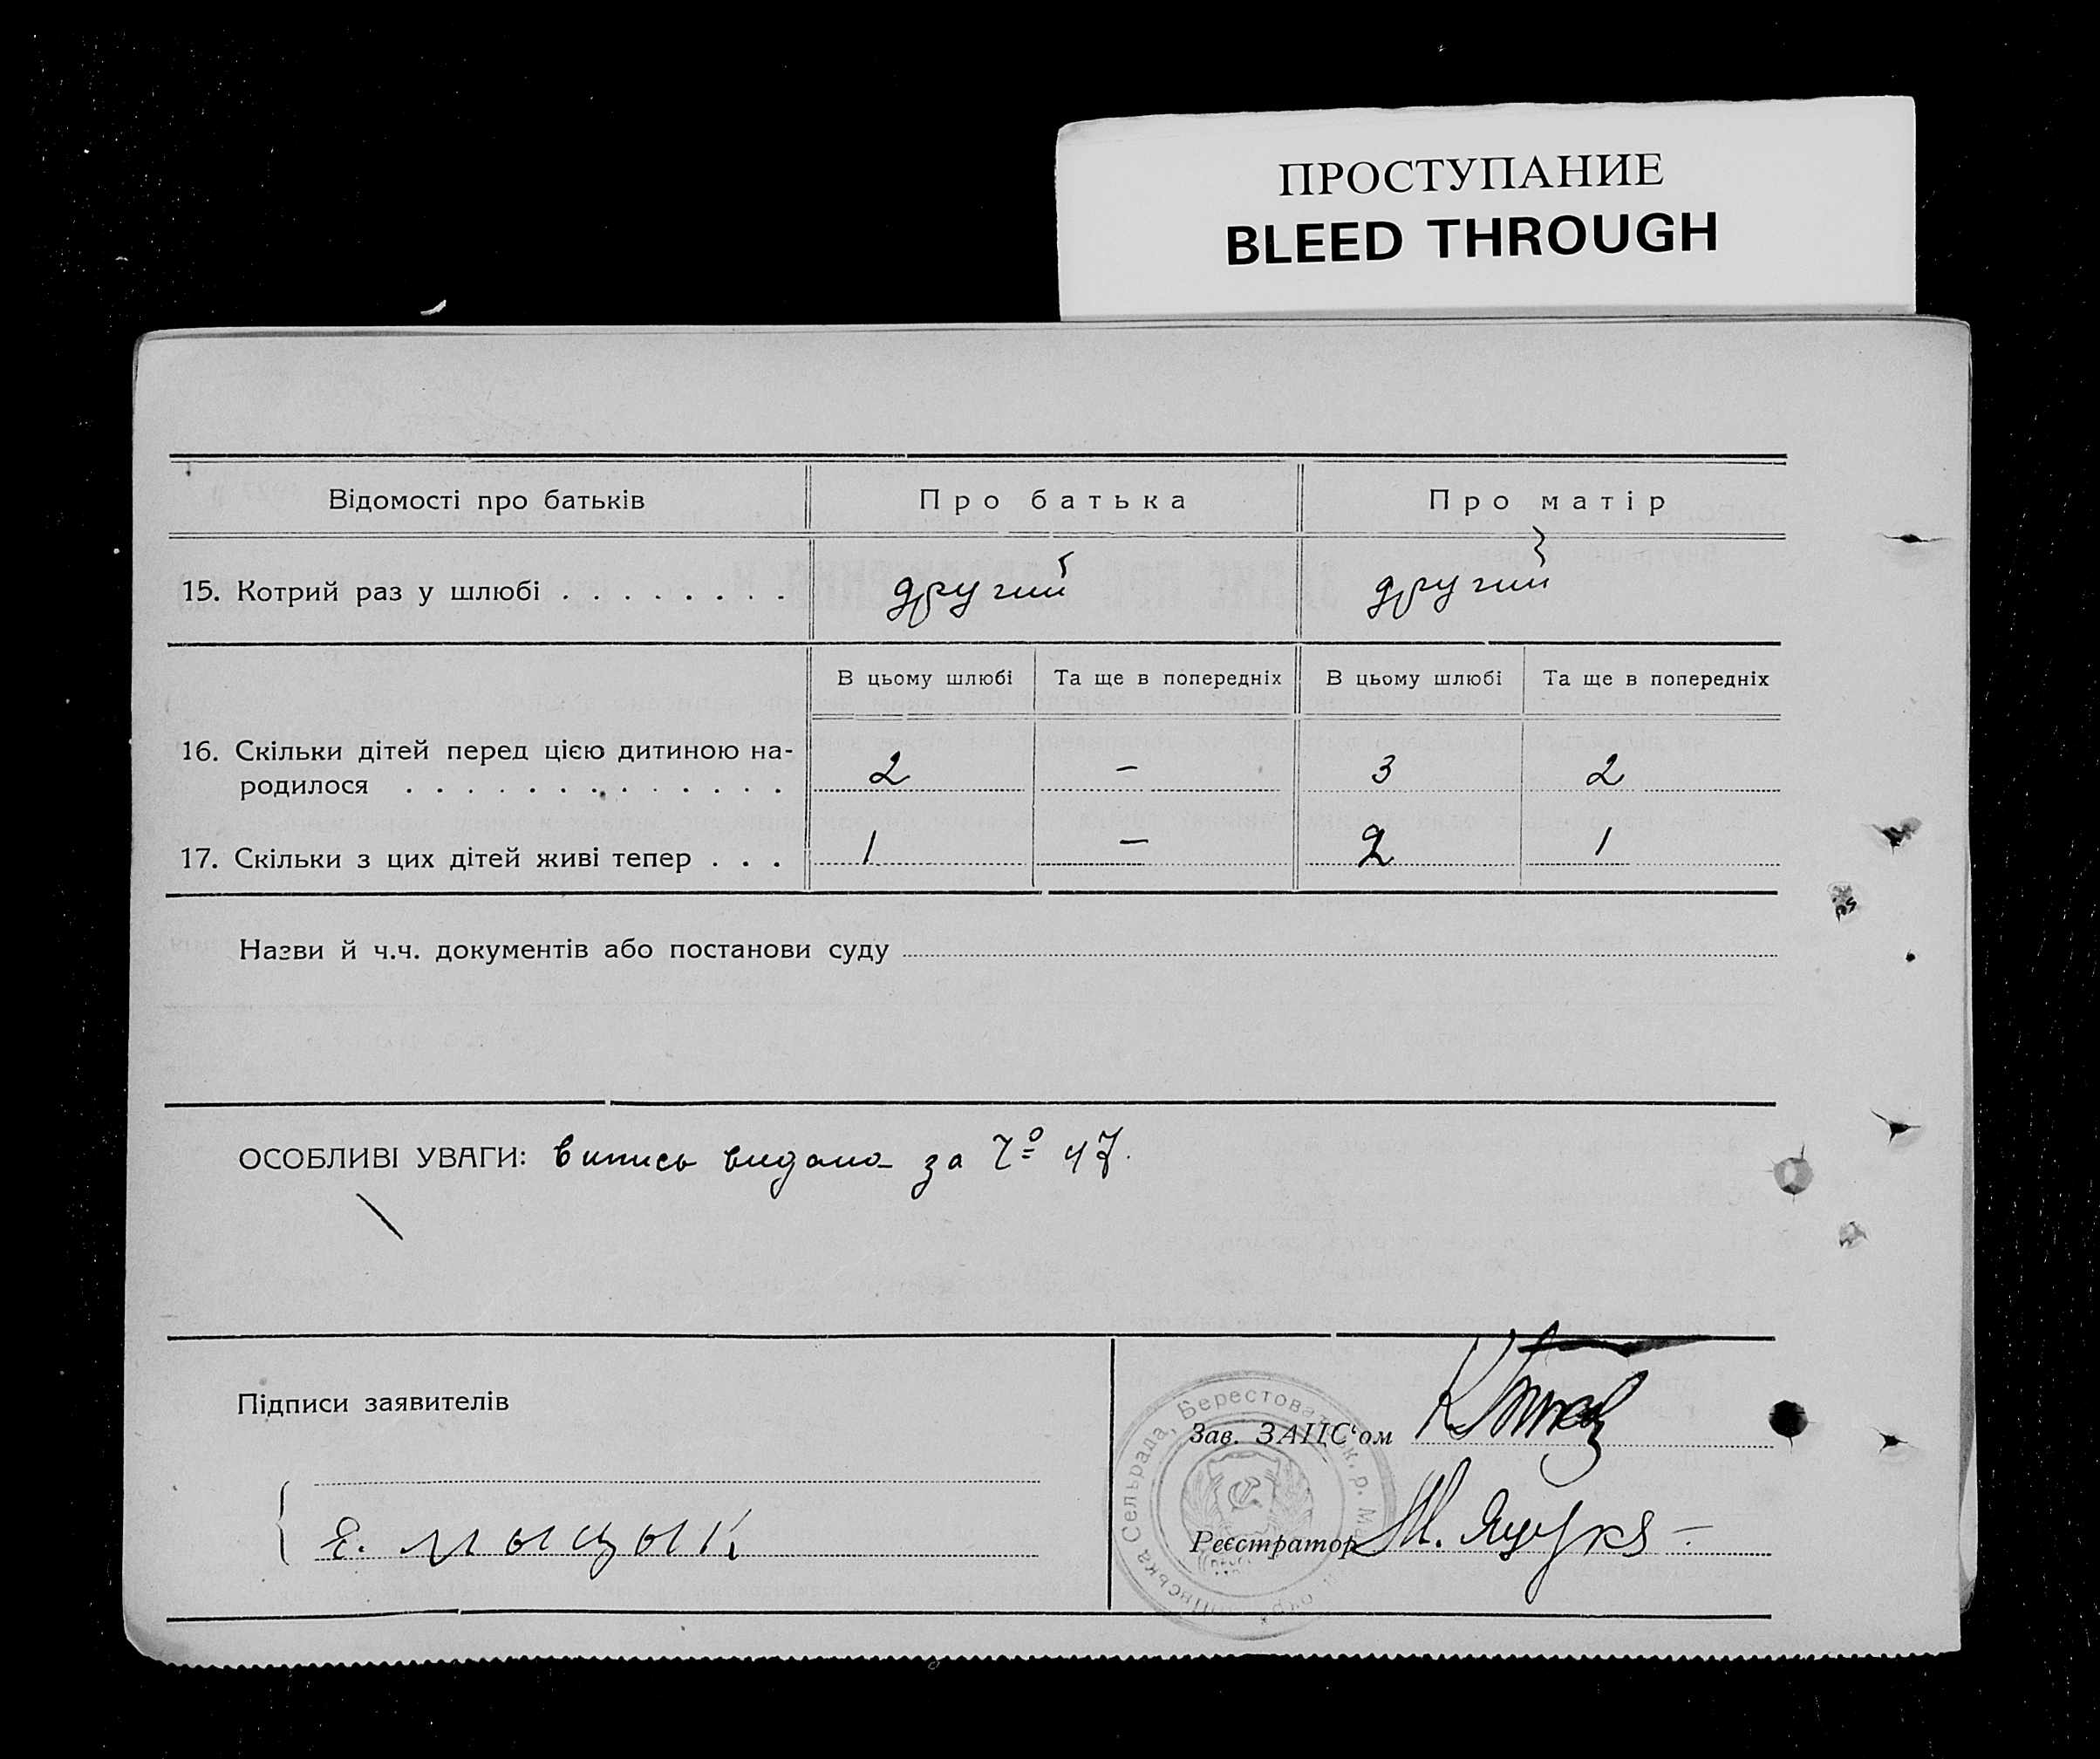 ПРОСТУПАНИЕ
BLEED THROUGH
Відомості про батьків Про батька Про матір
15. Котрий раз у шлюбі . . . . . . . . другий другий
В цьому шлюбі Та ще в попередніх В цьому шлюбі Та ще в попередніх
16. Скільки дітей перед цією дитиною на-
родилося . . . . . . . . . . . . . 2 – 3 2
17. Скільки з цих дітей живі тепер . . . 1 – 2 1
Назви й ч.ч. документів або постанови суду
ОСОБЛИВІ УВАГИ: випись видана за Ч° 47.
Підписи заявителів
Зав. ЗАЦС‘ом
Є. Мыцык
Реєстратор
Сельрада, Берестоват